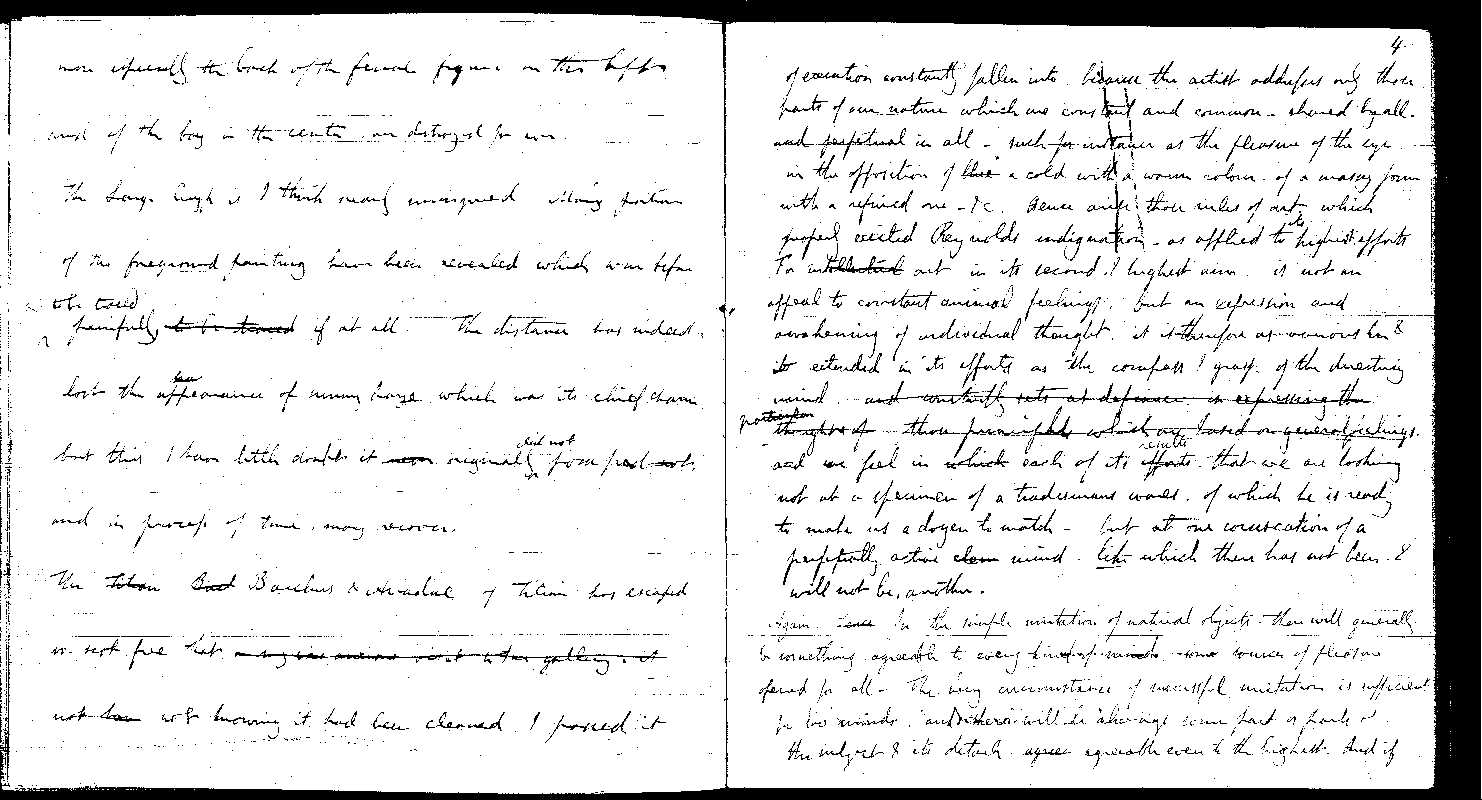 more especially the back of the female figure on the left
and of the boy in the centre are destroyed for ever.
The large Cuyp is I think nearly uninjured Many portions
of the foreground painting have been revealed which were before
to be traced
painfully to be traced if at all. The distance has indeed
lost the appearance of sunny haze which was its chief charm
but this I have little doubt it never originally did not possessed not
and in process of time may recover.
The Titian Bac Bacchus & Ariadne of Titian has escaped
so scot free that
not have not knowing it had been cleaned I passed it
4
of execution constantly fallen into because the artist addresses only those
parts of our nature which are constant and common - shared by all.
and perpetual in all - such for instance as the pleasure of the eye
in the opposition of blue a cold with a warm colour. of a massy form
with a refined one - &c. Hence arise those rules of art which
properly excited Reynolds indignation - as applied to its highest efforts
For intellectual art in its second & highest aim is not an
appeal to constant animal feelings, but an expression and
awakening of individual thought. it is therefore as various in &
to extended in its efforts as the compass & grasp of the directing
mind. and constantly sets at defiance in expressing the
particular
thoughts of those principles which are based on general feelings.
and we feel in which each of its efforts results that we are looking
not at a specimen of a tradesmans wares. of which he is ready
to make us a dozen to match - but at one coruscation of a
perpetually active mind. like which there has not been &
will not be, another.
Again In the simple imitation of natural objects there will generally
be something agreeable to every kind of minds some sources of pleasure
offered for all - The very circumstance of successful imitation is sufficient
for low minds. and there will be always some part or parts of
the subject & its details agree agreeable even to the highest. And if